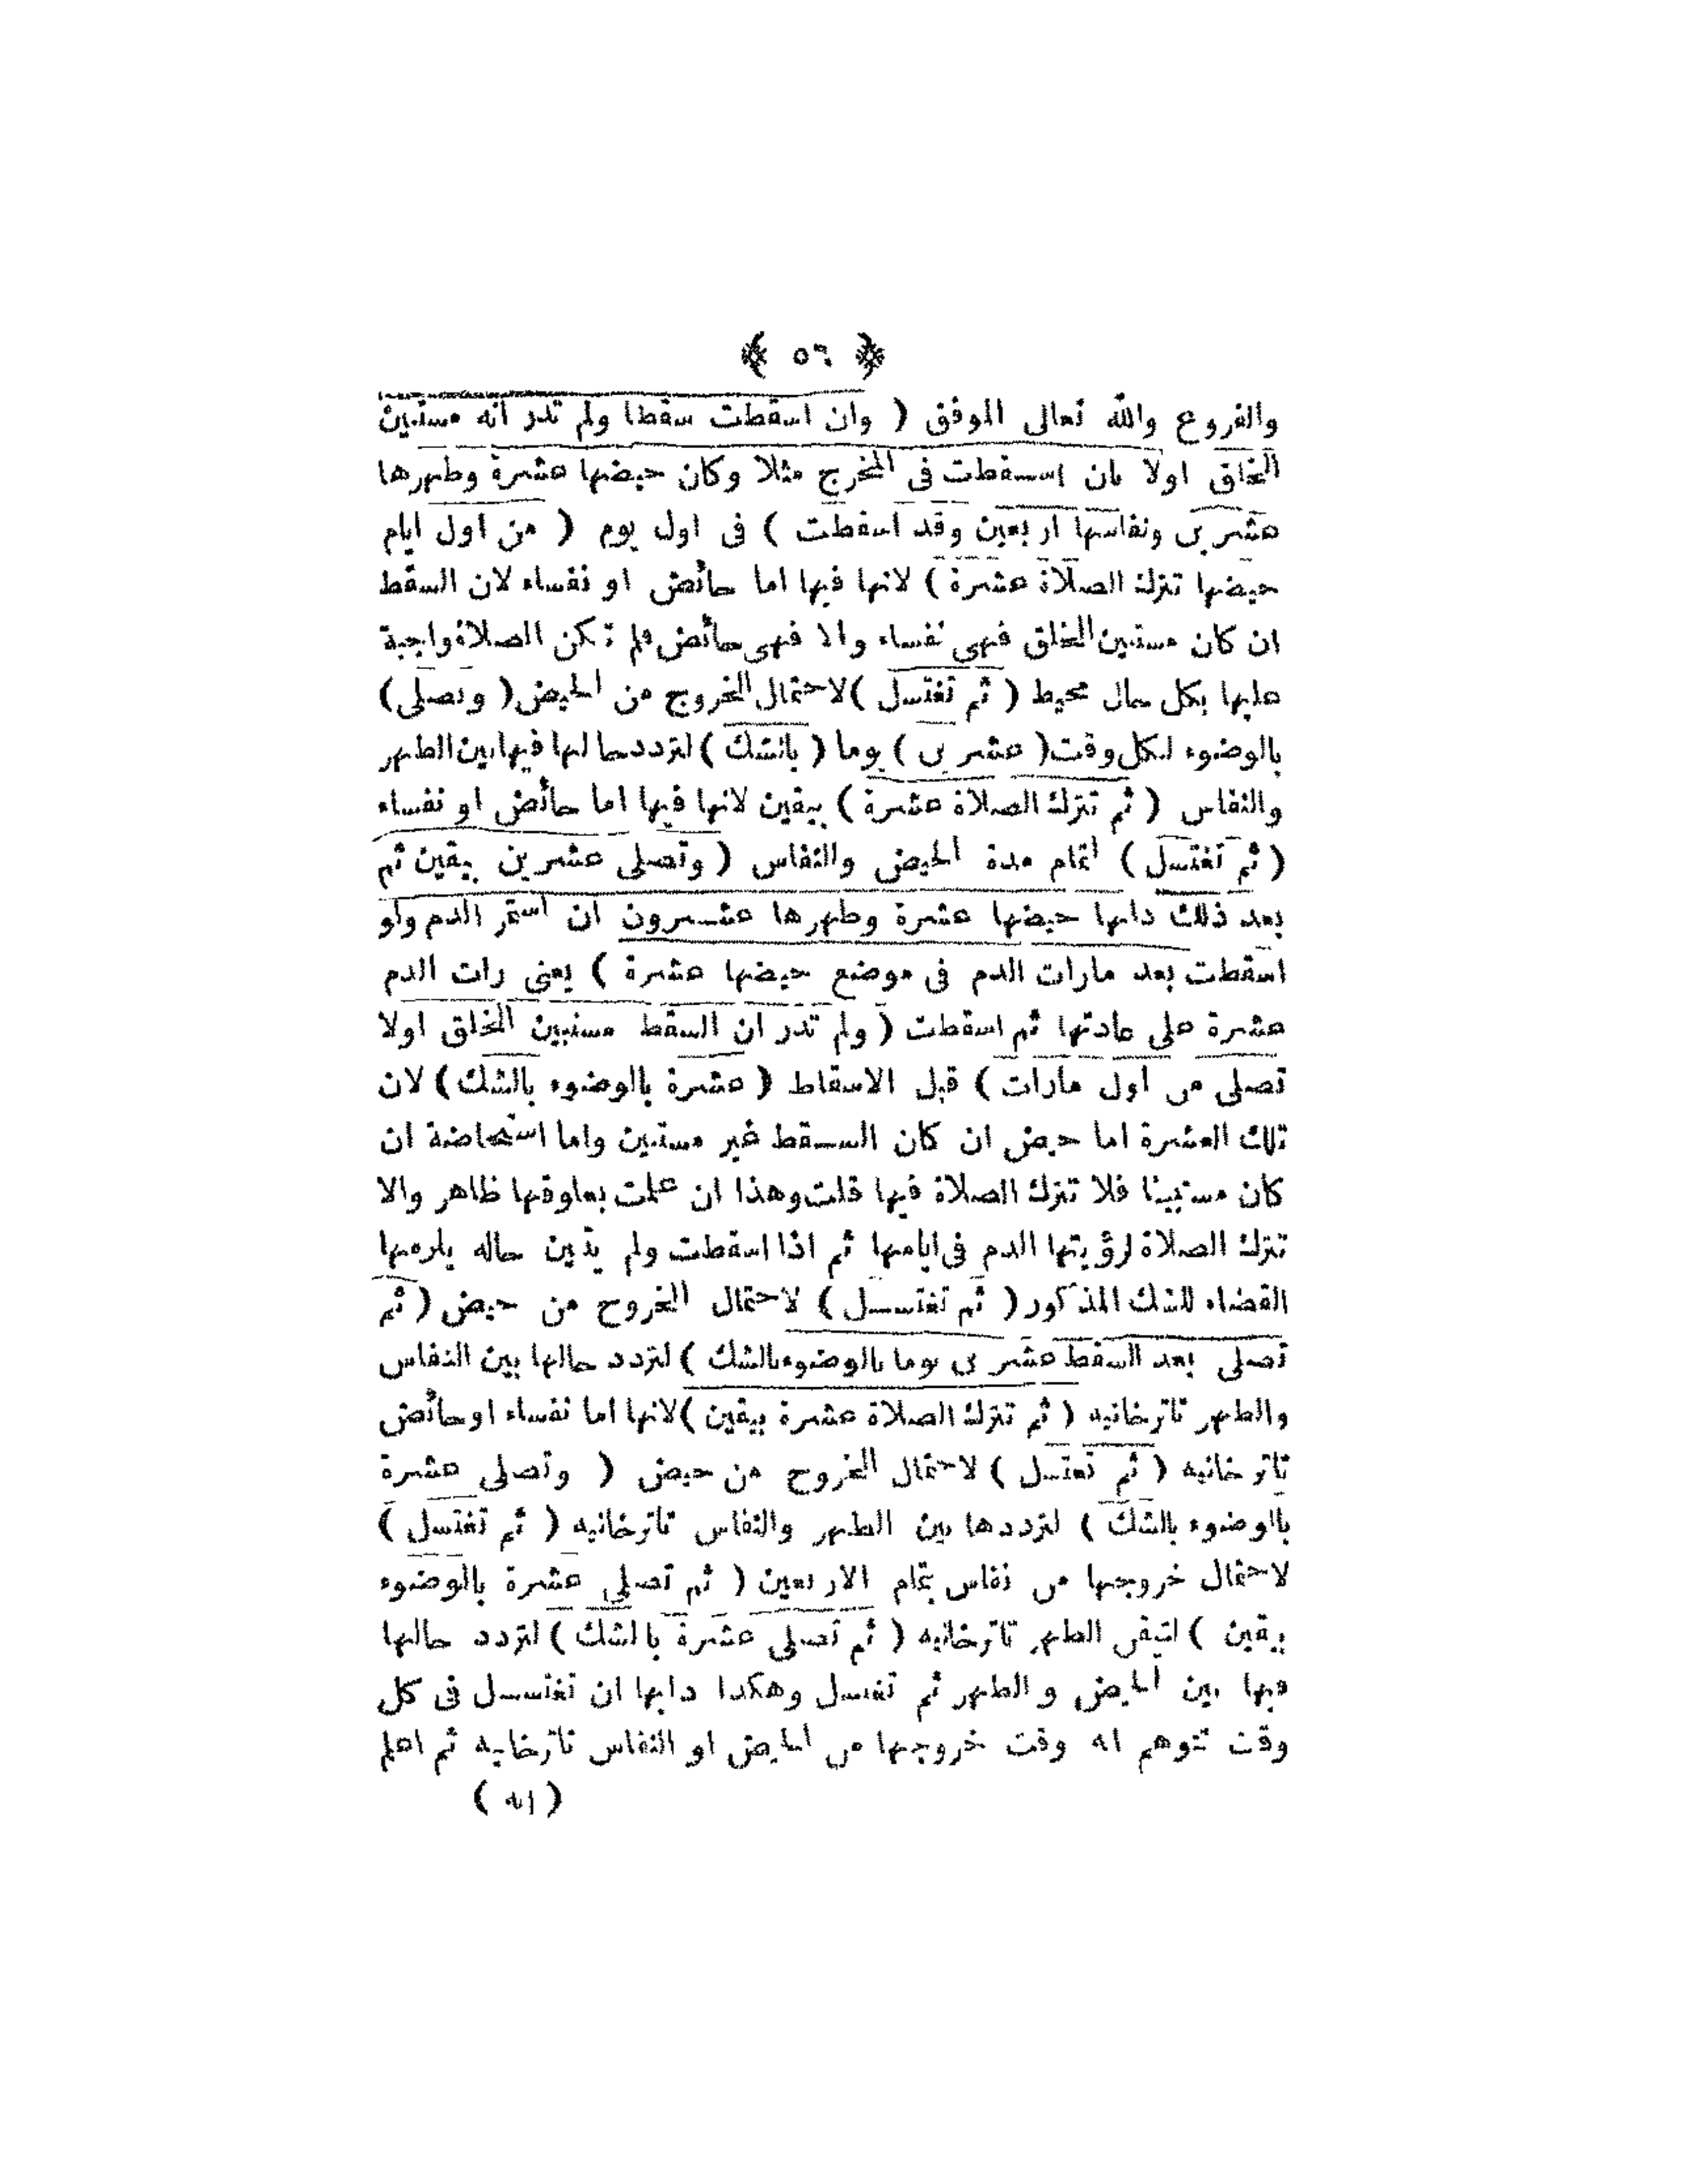 ﴿ ٥٦ ﴾
والفروع والله تعالى الموفق ( وان اسقطت سقطا ولم تدر انه مستبين
الخلق اولا بان اسقطت فى المخرج مثلا وكان حيضها عشرة وطهرها
عشرين ونفاسها اربعين وقد اسقطت ) فى اول يوم ( من اول ايام
حيضها تترك الصلاة عشرة ) لانها فيها اما حائض او نفساء لان السقط
ان كان مستبين الخلق فهى نفساء والا فهى حائض فلم تكن الصلاة واجبة
عليها بكل حال محيط ( ثم تغتسل ) لاحتمال الخروج من الحيض ( وتصلى )
بالوضوء لكل وقت ( عشرين ) يوما ( بالشك ) لتردد حالها فيها بين الطهر
والنفاس ( ثم تترك الصلاة عشرة ) بيقين لانها فيها اما حائض او نفساء
( ثم تغتسل ) لتمام مدة الحيض والنفاس ( وتصلى عشرين بيقين ثم
بعد ذلك دابها حيضها عشرة وطهرها عشرون ان استمر الدم ولو
اسقطت بعد مارات الدم فى موضع حيضها عشرة ) يعنى رات الدم
عشرة على عادتها ثم اسقطت ( ولم تدر ان السقط مستبين الخلق اولا
تصلى من اول مارات ) قبل الاسقاط ( عشرة بالوضوء بالشك ) لان
تلك العشرة اما حيض ان كان السقط غير مستبين واما استحاضة ان
كان مستبينا فلا تترك الصلاة فيها قلت وهذا ان علمت بعلوقها ظاهر والا
تترك الصلاة لرؤيتها الدم فى ايامها ثم اذا اسقطت ولم يتبين حاله يلزمها
القضاء للشك المذكور ( ثم تغتسل ) لاحتمال الخروج من حيض ( ثم
تصلى بعد السقط عشرين يوما بالوضوء بالشك ) لتردد حالها بين النفاس
والطهر تاترخانيه ( ثم تترك الصلاة عشرة بيقين ) لانها اما نفساء او حائض
تاترخانيه ( ثم تغتسل ) لاحتمال الخروج من حيض ( وتصلى عشرة
بالوضوء بالشك ) لترددها بين الطهر والنفاس تاترخانيه ( ثم تغتسل )
لاحتمال خروجها من نفاس بتمام الاربعين ( ثم تصلى عشرة بالوضوء
بيقين ) لتيقن الطهر تاترخانيه ( ثم تصلى عشرة بالشك ) لتردد حالها
فيها بين الحيض والطهر ثم تغتسل وهكذا دابها ان تغتسل فى كل
وقت تتوهم انه وقت خروجها من الحيض او النفاس تاترخانيه ثم اعلم
( انه )